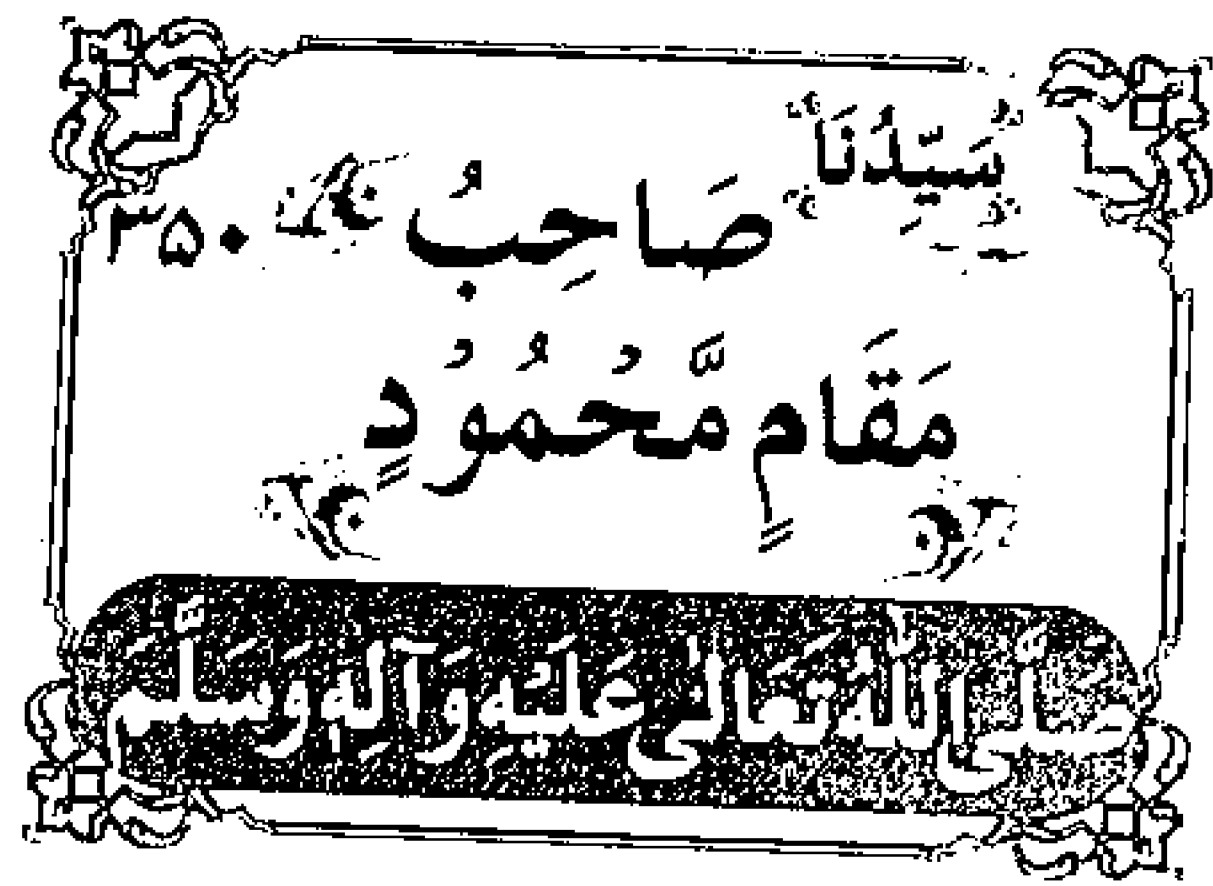 سَيِّدُنَا
صَاحِبُ ۳۵۰
مَقَامٍ مَّحُمُوُدٍ
صَلَّى اللّٰهُ تَعَالٰى عَلَيْهِ وَآلِهٖ وَسَلَّمَ